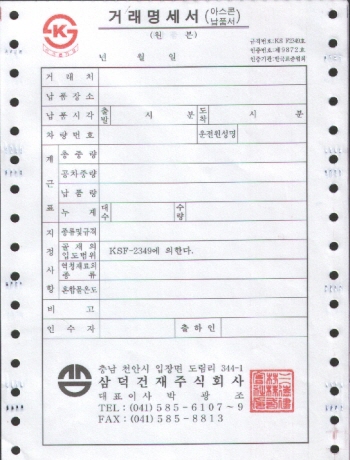 거래명세서(아스콘 납품서)
(원 본)
규격번호:KS F2349호
인증번호:제9872호
인증기관:한국표준협회
년 월 일
거 래 처
납 품 장 소
납 품 시 각 출발 시 분 도착 시 분
차 량 번 호 운전원성명
계근표 총 중 량
공차중량
납 품 량
누 계 대수 수량
지정사항 종류및규격
골 재 의 입도범위 KSF-2349에 의한다.
혁청재료의 종 류
혼합물온도
비 고
인 수 자 출 하 인
충남 천안시 입장면 도림리 344-1
삼덕건재주식회사
대 표 이 사 박 광 조
TEL : (041) 585-6107~9
FAX : (041) 585-8813